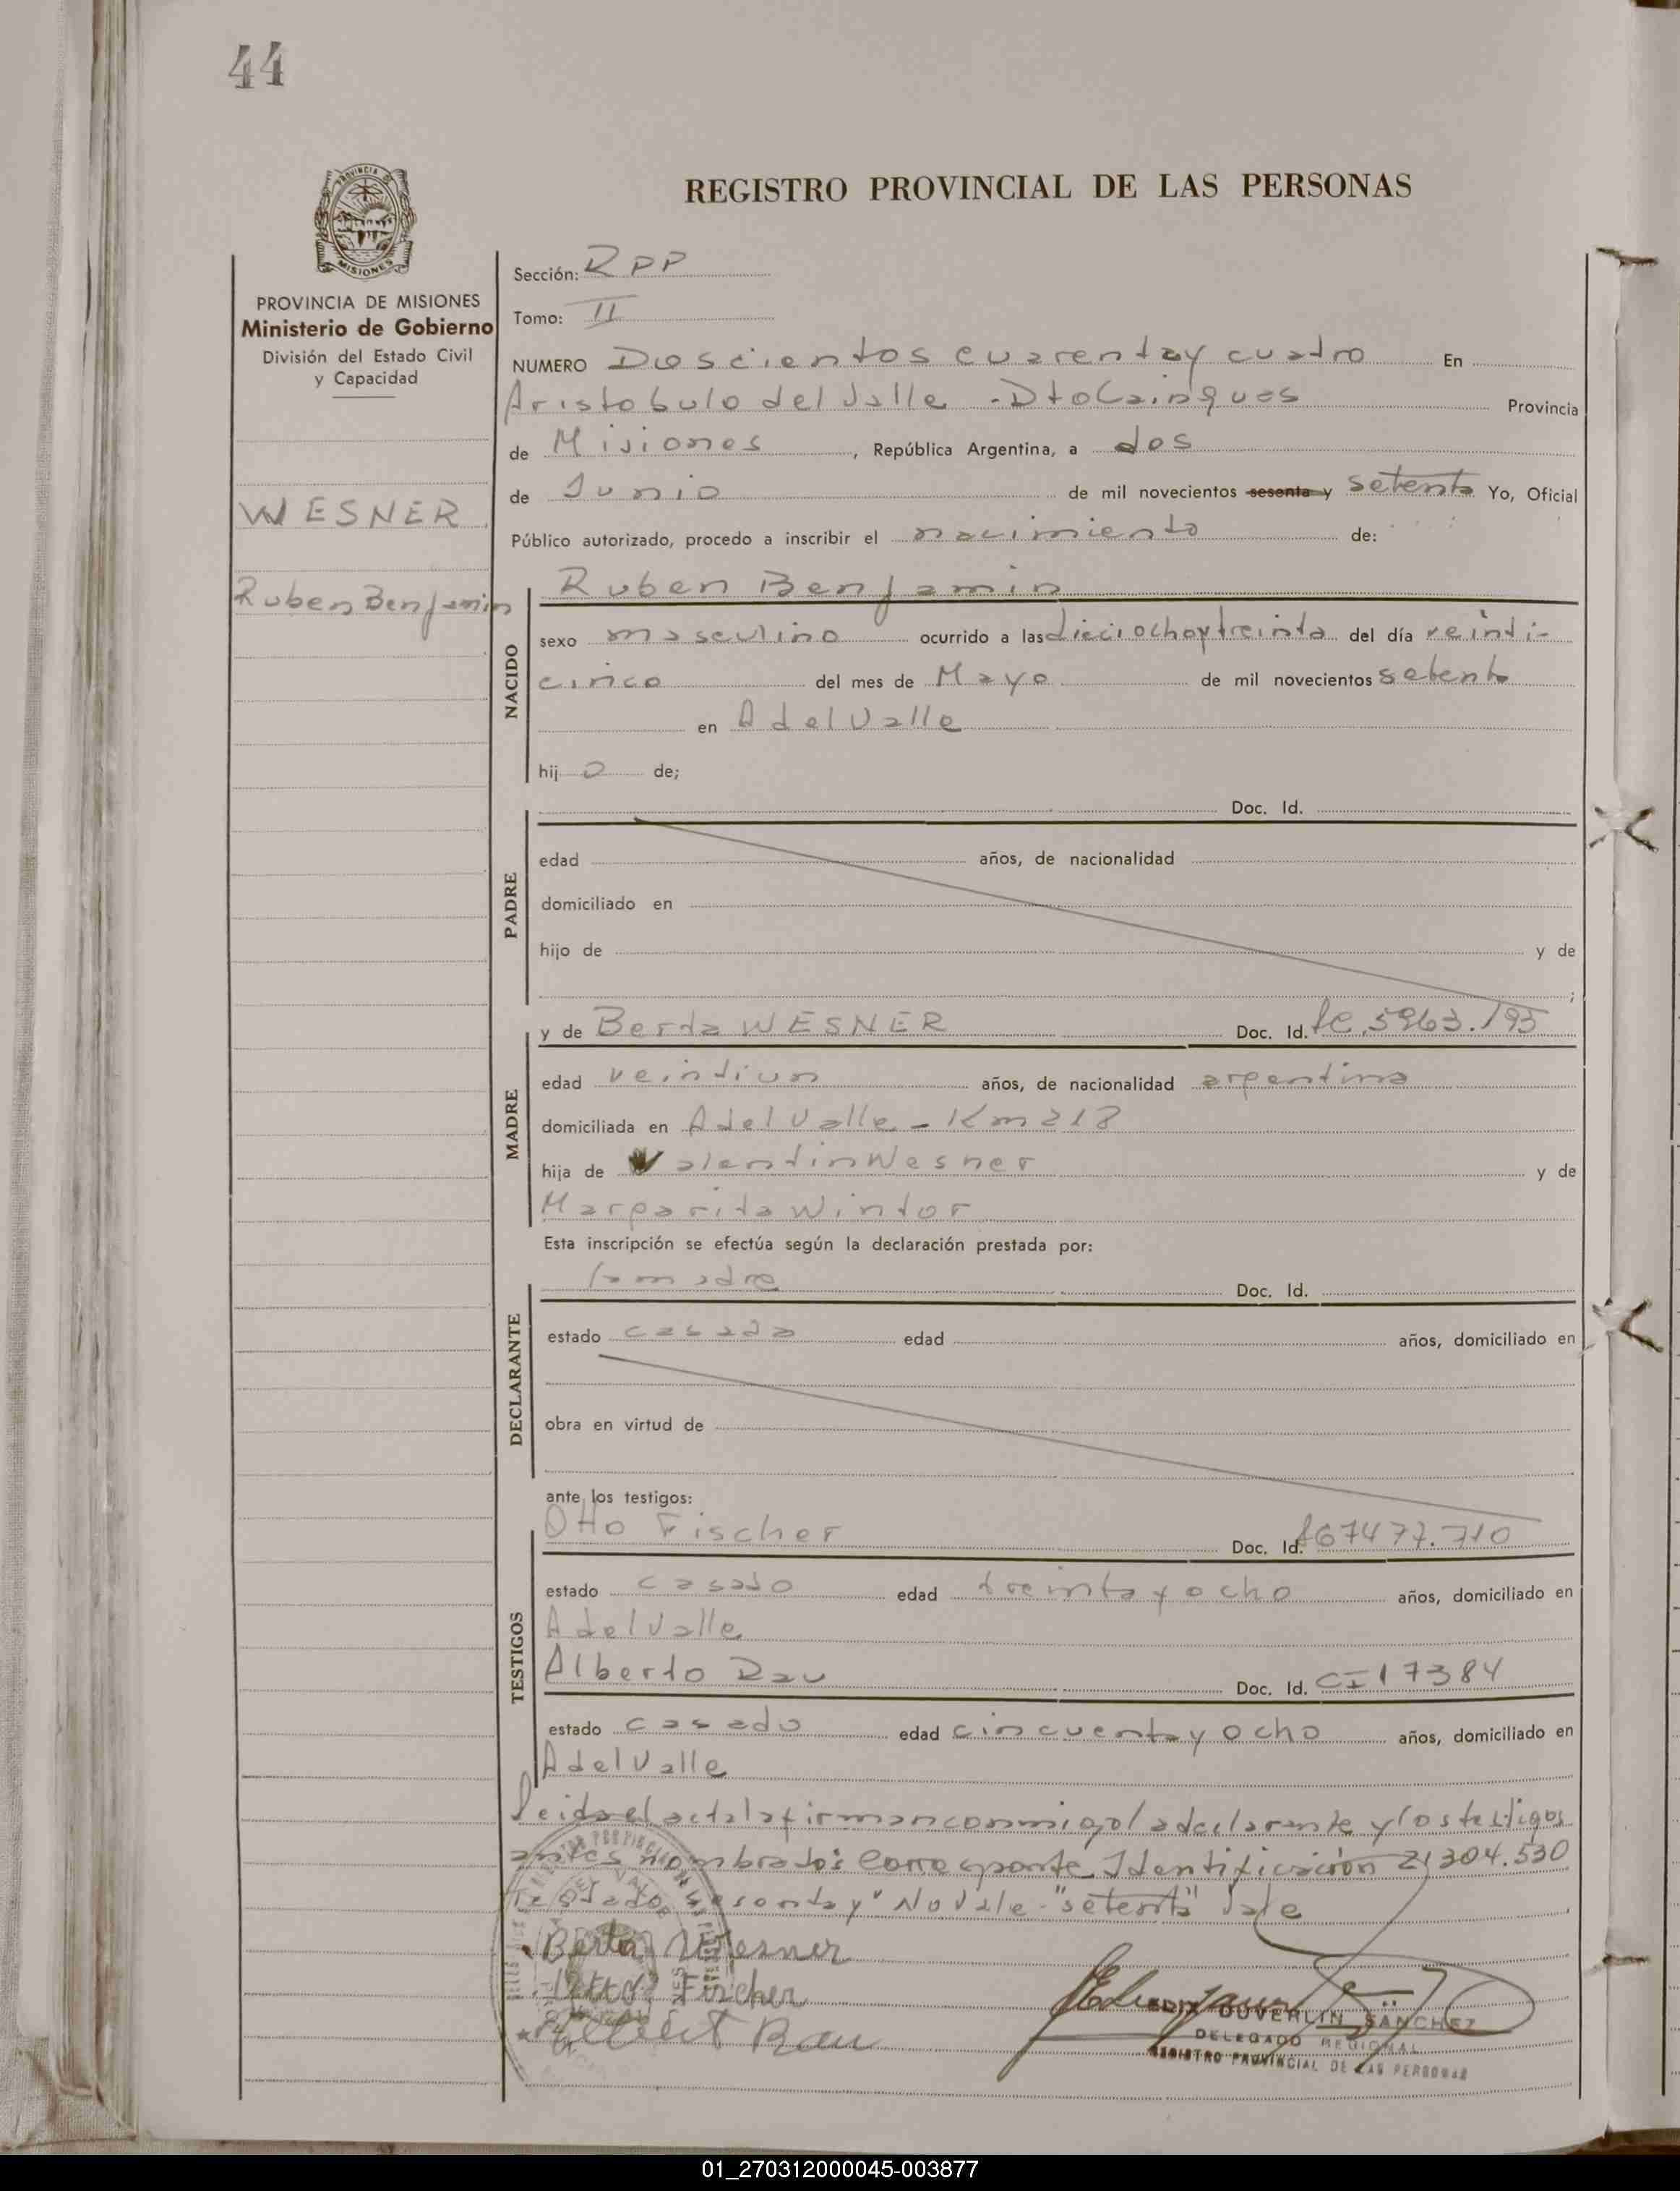 44
REGISTRO PROVINCIAL DE LAS PERSONAS
PROVINCIA DE MISIONES
Ministerio de Gobierno
División del Estado Civil
y Capacidad
WESNER
Ruben Benjamin
Sección: RPP
Tomo: II
NUMERO Doscientos cuarenta y cuatro En
Aristobulo del Valle - Dto Cainguas Provincia
de Misiones, República Argentina, a dos
de Junio de mil novecientos sesenta y setenta Yo, Oficial
Público autorizado, procedo a inscribir el nacimiento de:
NACIDO
Ruben Benjamin
sexo masculino ocurrido a las dieciocho y treinta del día veinti-
cinco del mes de Mayo de mil novecientos setenta
en A del Valle
hij o de;
PADRE
Doc. Id.
edad años, de nacionalidad
domiciliado en
hijo de y de
;
MADRE
y de Berta WESNER Doc. Id. 5963.195
edad veintiun años, de nacionalidad argentina
domiciliada en A del Valle - Km 218
hija de Valentin Wesner y de
Margarita Wintor
Esta inscripción se efectúa según la declaración prestada por:
DECLARANTE
la madre Doc. Id.
estado casada edad años, domiciliado en
obra en virtud de
ante los testigos:
TESTIGOS
Otto Fischer Doc. Id. 7477.710
estado casado edad treinta y ocho años, domiciliado en
A del Valle
Alberto Rau Doc. Id. CI 17384
estado casado edad cincuenta y ocho años, domiciliado en
A del Valle
Leida el acta la firman conmigo la declarante y los testigos
antes nombrados Corresponde Identificación 21304.530
Testado "sesenta y" No Vale - "setenta" Vale
Berta Wesner
Otto Fischer
Albert Rau
DUVERLIN SANCHEZ
DELEGADO REGIONAL
REGISTRO PROVINCIAL DE LAS PERSONAS
01_270312000045-003877